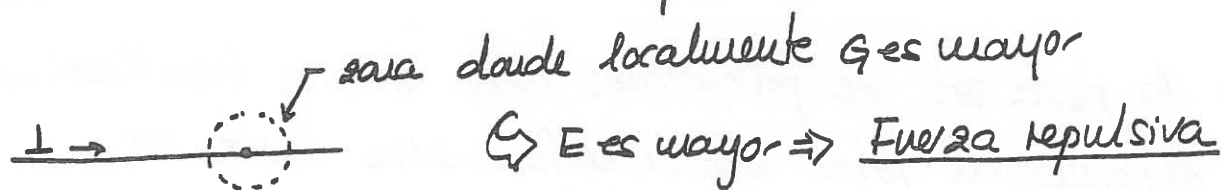 zona donde localmente G es mayor
⊥ →
↳ E es mayor ⇒ Fuerza repulsiva